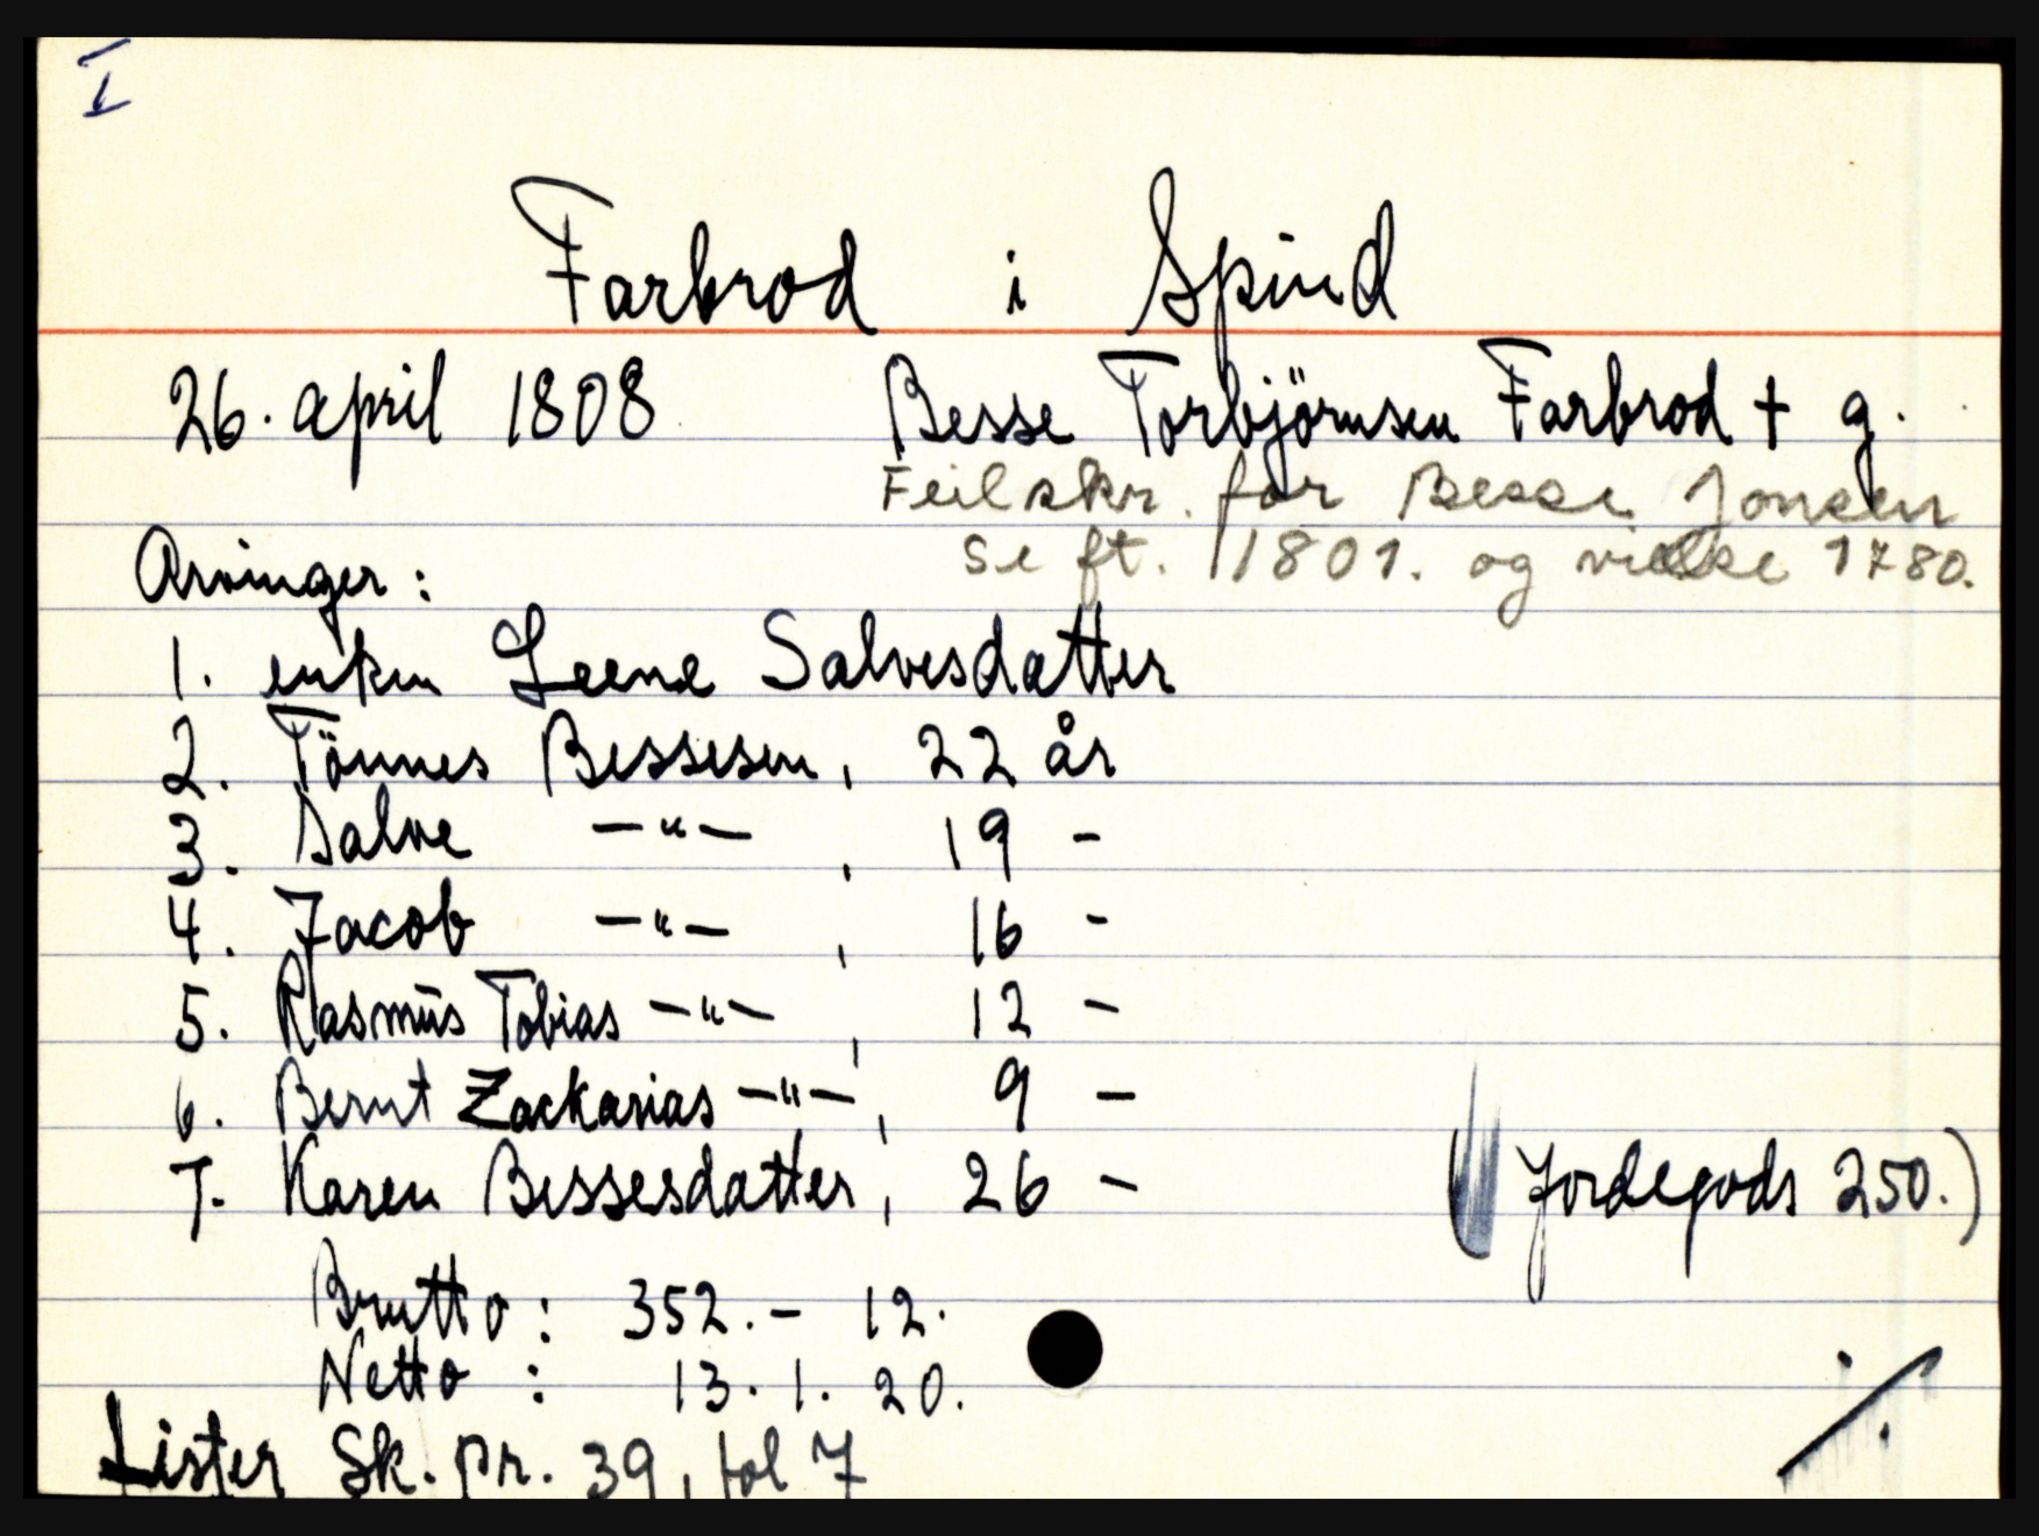 I
Farbrod i Spind
26. april 1808 Besse Torbjörnsen Farbrod + g.
Feilskr. for Besse Jonsen
Se ft. 1801. og vielse 1780.
Arvinger:
1. enken Leene Salvesdatter
2. Tönnes Bessesen, 22 år
3. Salve —"— , 19 -
4. Jacob —"— , 16 -
5. Rasmus Tobias —"— , 12 -
6. Bernt Zackarias —"— , 9 -
7. Karen Bessesdatter, 26 - (Jordegods 250.)
Brutto: 352.- 12.
Netto : 13. 1. 20.
Lister Sk. pr. 39, fol 7